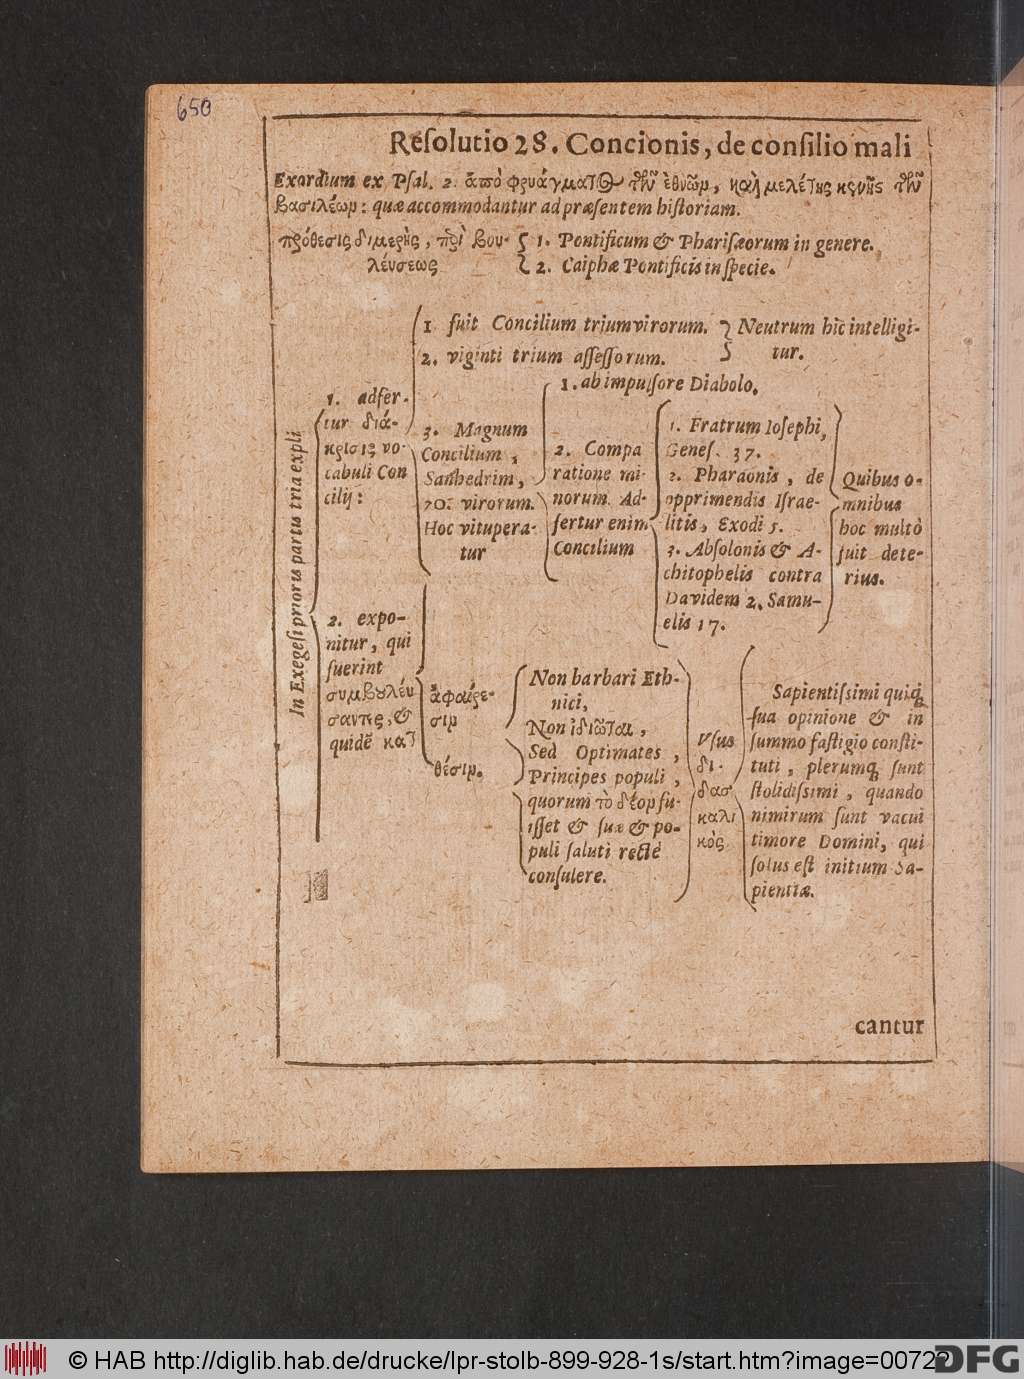 650
Resolutio 28. Concionis, de consilio mali
Exordium ex Psal. 2. ἀπὸ φρυάγματ@ τῶν ἐθνῶν, καὶ μελέτης κενῆς τῶν
βασιλέων: quæ accommodantur ad præsentem historiam.
πρόθεσις διμερὴς, περὶ βου-
λεύσεως
1. Pontificum & Pharisæorum in genere.
2. Caiphæ Pontificis in specie.
In Exegesi prioris partus tria expli
1. adfer-
tur διά-
κρισις vo-
cabuli Con
cilij:
1. fuit Concilium triumvirorum.
2. viginti trium assessorum.
Neutrum hic intelligi-
tur.
3. Magnum
Concilium,
Sanhedrim,
70. virorum.
Hoc vitupera-
tur
1. ab impulsore Diabolo.
2. Compa
ratione mi-
norum. Ad-
fertur enim
Concilium
1. Fratrum Iosephi,
Genes. 37.
2. Pharaonis, de
opprimendis Israe-
litis, Exodi 5.
3. Absolonis & A-
chitophelis contra
Davidem 2. Samu-
elis 17.
Quibus o-
mnibus
hoc multò
fuit dete-
rius.
2. expo-
nitur, qui
fuerint
συμβȣλέυ
σαντες, &
quidẽ κατ
ἀφαίρε-
σιν
θέσιν.
Non barbari Eth-
nici,
Non ἰδιῶται,
Sed Optimates,
Principes populi,
quorum τὸ δέον fu-
isset & suæ & po-
puli saluti rectè
consulere.
Vsus
δι-
δασ
καλι
κός
Sapientissimi quiq;
sua opinione & in
summo fastigio consti-
tuti, plerumq; sunt
stolidissimi, quando
nimirum sunt vacui
timore Domini, qui
solus est initium Sa-
pientiæ.
cantur
© HAB http://diglib.hab.de/drucke/lpr-stolb-899-928-1s/start.htm?image=00722
DFG